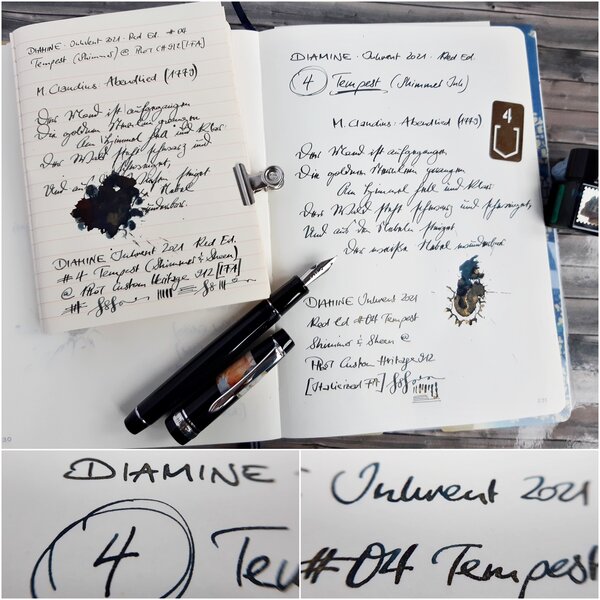 DIAMINE · Inkvent 2021 · Red Ed. #04
Tempest (Shimmer) @ Pilot CH 912 [FA]
M. Claudius: Abendlied (1779)
Der Mond ist aufgegangen
Die goldnen Sternlein prangen
Am Himmel hell und klar.
Der Wald steht schwarz und
schweiget,
Und aus den Wiesen steiget
Nebel
wunderbar.
DIAMINE Inkvent 2021 Red Ed.
#4 Tempest (Shimmer & Sheen)
@ Pilot Custom Heritage 912 [FA]
DIAMINE · Inkvent 2021 · Red Ed.
4 Tempest (Shimmer Ink)
M. Claudius: Abendlied (1779)
Der Mond ist aufgegangen
Die goldnen Sternlein prangen
Am Himmel hell und klar
Der Wald steht schwarz und schweiget,
Und aus den steiget
Der weiße Nebel wunderbar
DIAMINE Inkvent 2021
Red Ed #04 Tempest
Shimmer & Sheen @
Pilot Custom Heritage 912
FA]
4
DIAMINE
4 Tem
Inkvent 2021
#04 Tempest